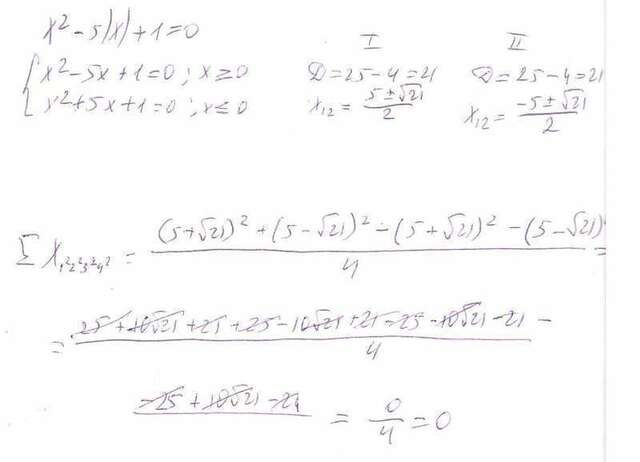 x² - 5|x| + 1 = 0
I II
{ x² - 5x + 1 = 0 ; x ≥ 0 D = 25 - 4 = 21 D = 25 - 4 = 21
{ x² + 5x + 1 = 0 ; x ≤ 0 x₁₂ = (5 ± √21)/2 x₁₂ = (-5 ± √21)/2
Σ x₁²,₂²,₃²,₄² = ((5+√21)² + (5-√21)² - (5+√21)² - (5-√21)²)/4 =
= (25 + 10√21 + 21 + 25 - 10√21 + 21 - 25 - 10√21 - 21)/4 -
(-25 + 10√21 - 21) = 0/4 = 0